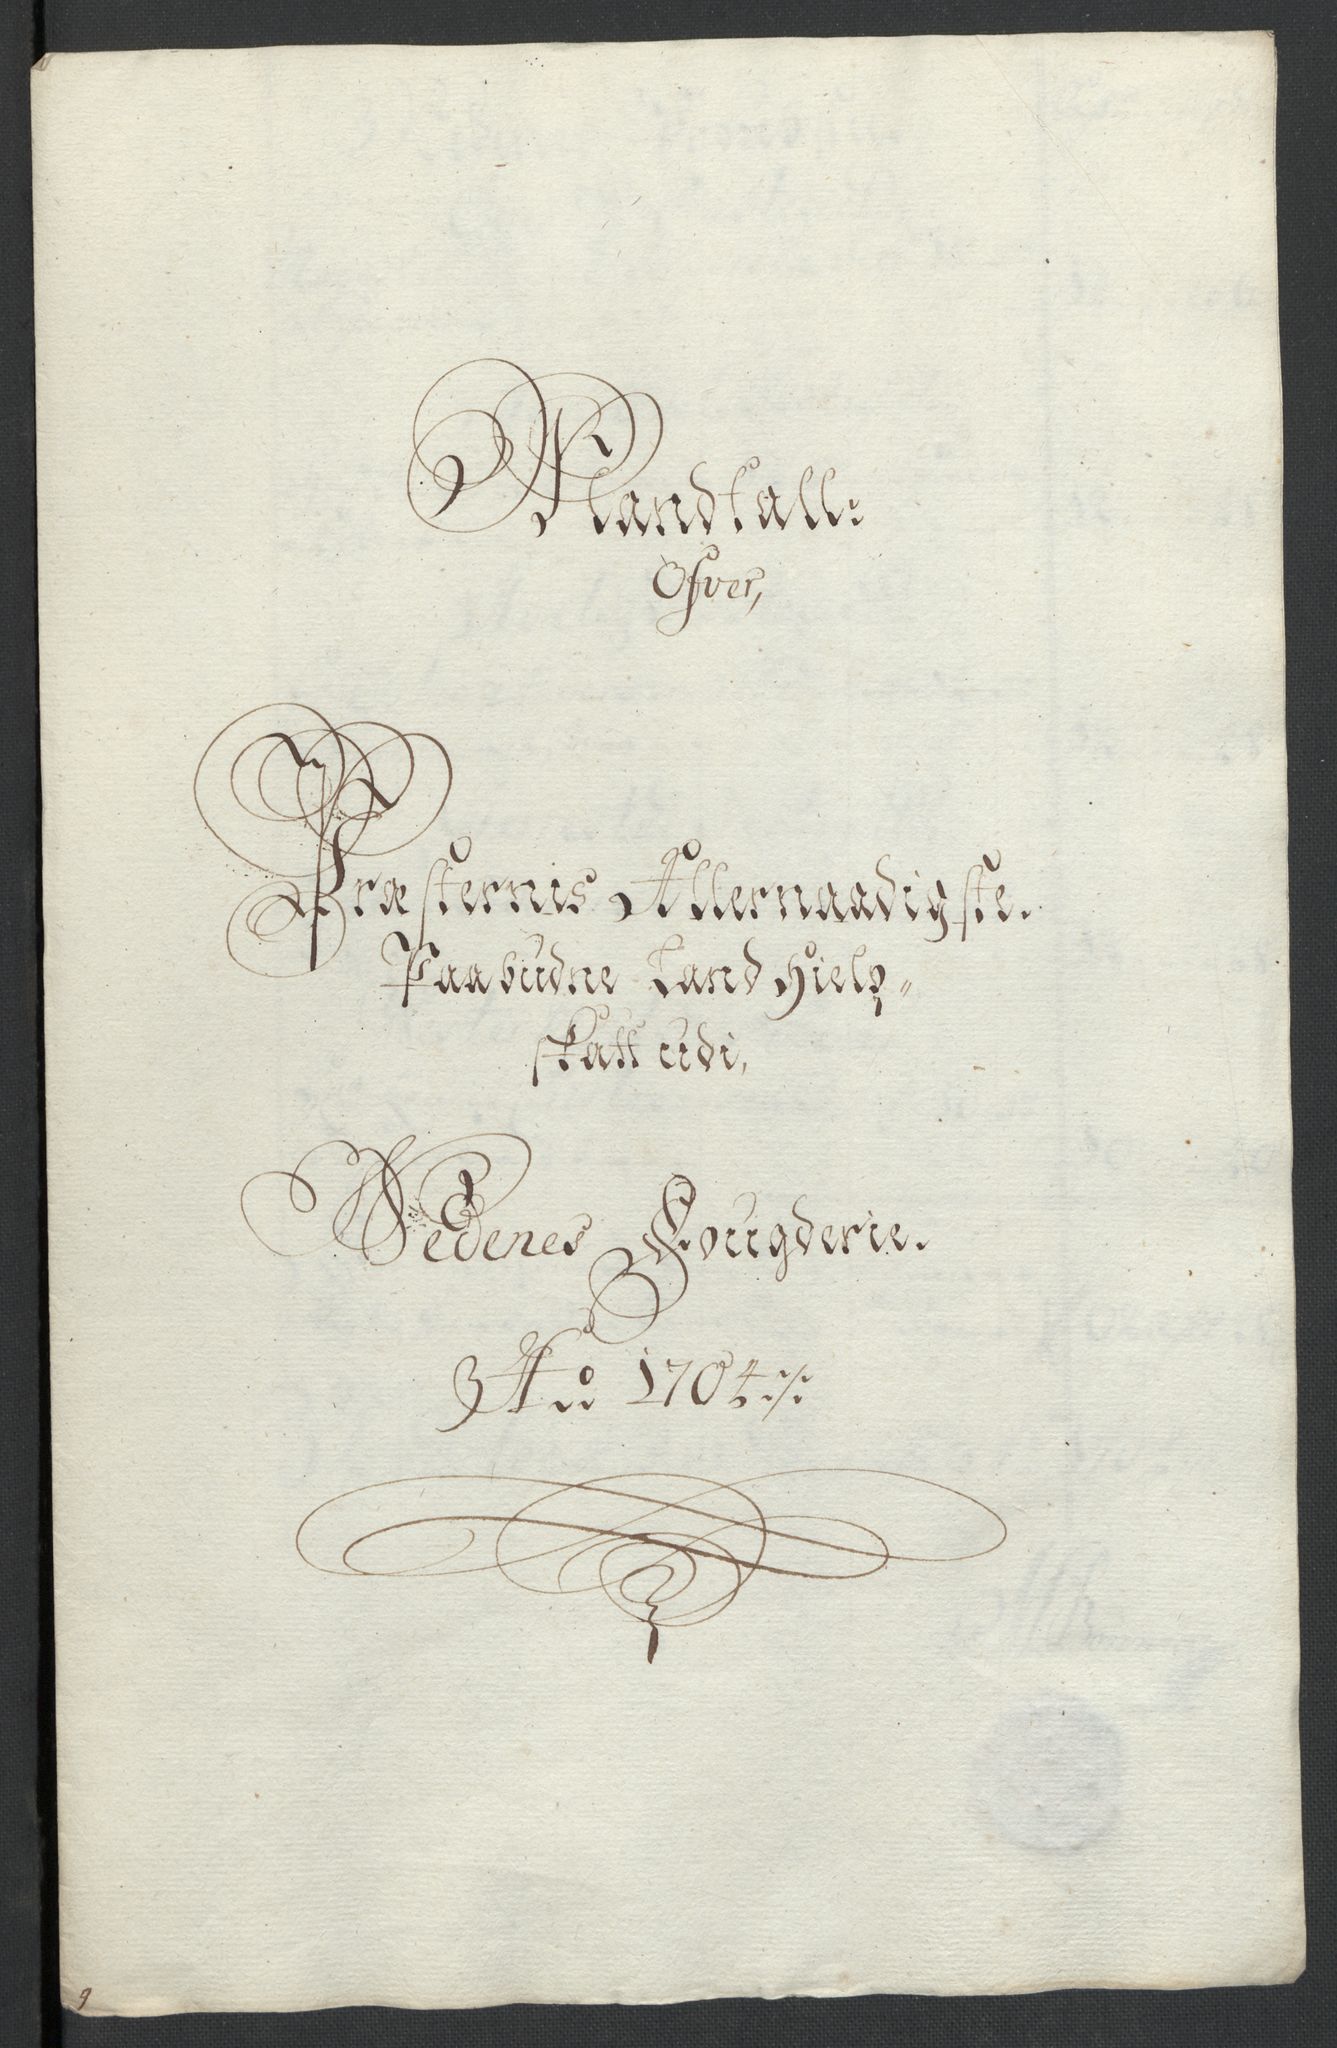 Mandtall:
Ofver,
Præsternis Allernaadigste.
Paabudne Land Hielp"
skatt udi,
Nedenes Fougderie.
Ao 1704 ./.
9